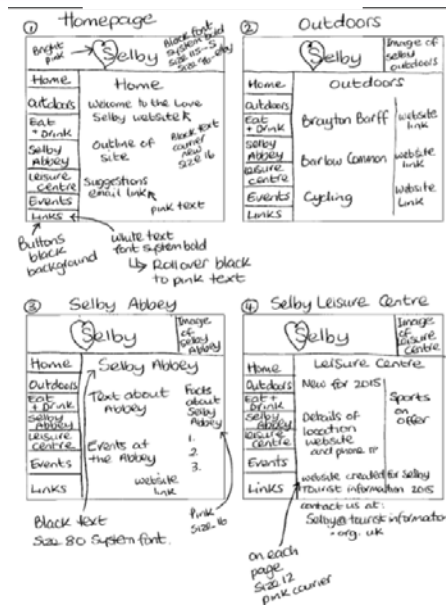 ① Homepage
Bright pink
Selby
Black font
system bold
Size 115-S
Home
Outdoors
Eat
+ Drink
Selby
Abbey
Leisure
centre
Events
Links
Home
Welcome to the Love
Selby website
Outline of
Site
Suggestions
email link
Black text
courier
new
Size 16
pink text
Buttons
black
background
White text
font system bold
↳ Rollover black
to pink text
② Outdoors
Selby
Image of
selby
outdoors
Home
Outdoors
Eat
+ Drink
Selby
Abbey
Leisure
centre
Events
Links
Outdoors
Brayton Barff
website
link
Barlow Common
website
link
Cycling
website
Link
③ Selby Abbey
Selby
Image
of
selby
Abbey
Home
Outdoors
Eat
+ Drink
Selby
Abbey
Leisure
centre
Events
Links
Selby Abbey
Text about
Abbey
Events at
the Abbey
website
link
Facts
about
Selby
Abbey
1.
2.
3.
Black text
Size 80 System font.
Pink
Size 16
④ Selby Leisure Centre
Selby
Image
of
Leisure
Centre
Home
Outdoors
Eat +
Drink
Selby
Abbey
Leisure
centre
Events
Links
Leisure Centre
New for 2015
Details of
location
website
and phone
Sports
on
offer
website created for Selby
Tourist information 2015
contact us at:
Selby@tourist informatio
.org.uk
on each
page
Size 12
pink courier